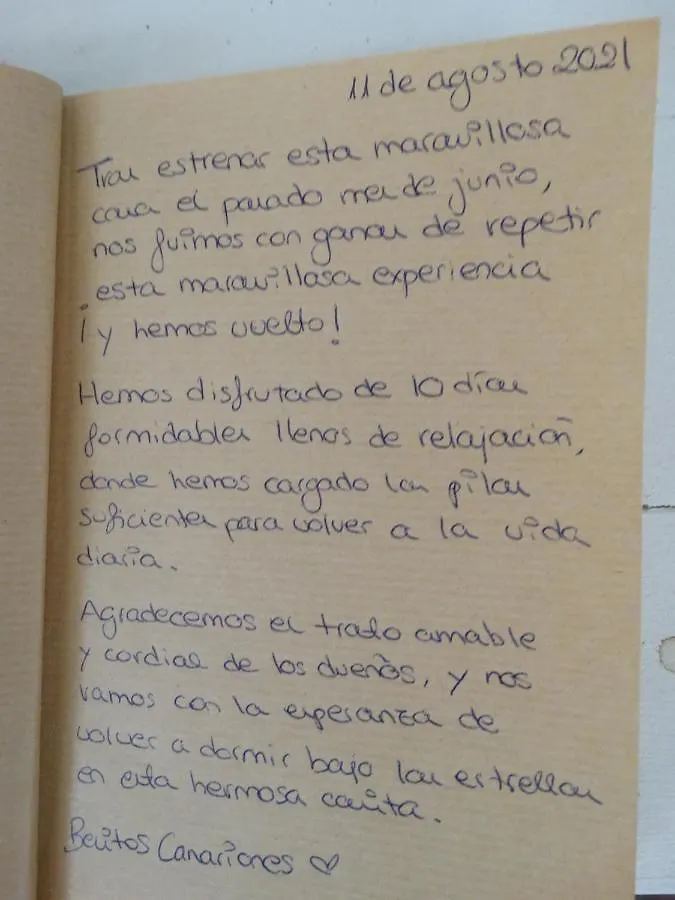 11 de agosto 2021
Tras estrenar esta maravillosa
casa el pasado mes de junio,
nos fuimos con ganas de repetir
esta maravillosa experiencia
¡y hemos vuelto!
Hemos disfrutado de 10 días
formidables llenos de relajación,
donde hemos cargado las pilas
suficientes para volver a la vida
diaria.
Agradecemos el trato amable
y cordial de los dueños, y nos
vamos con la esperanza de
volver a dormir bajo las estrellas
en esta hermosa casita.
Besitos Canariones ♡